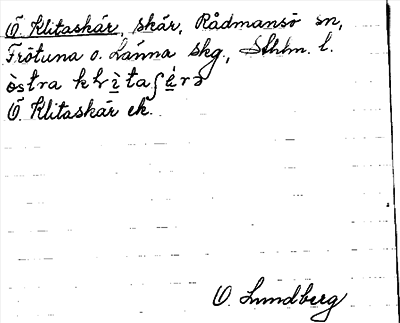 Ö. Klitaskär, skär, Rådmansö sn,
Frötuna o. Länna skg., Sthlm. l.
Ö. Klitaskär ek.
O. Lundberg